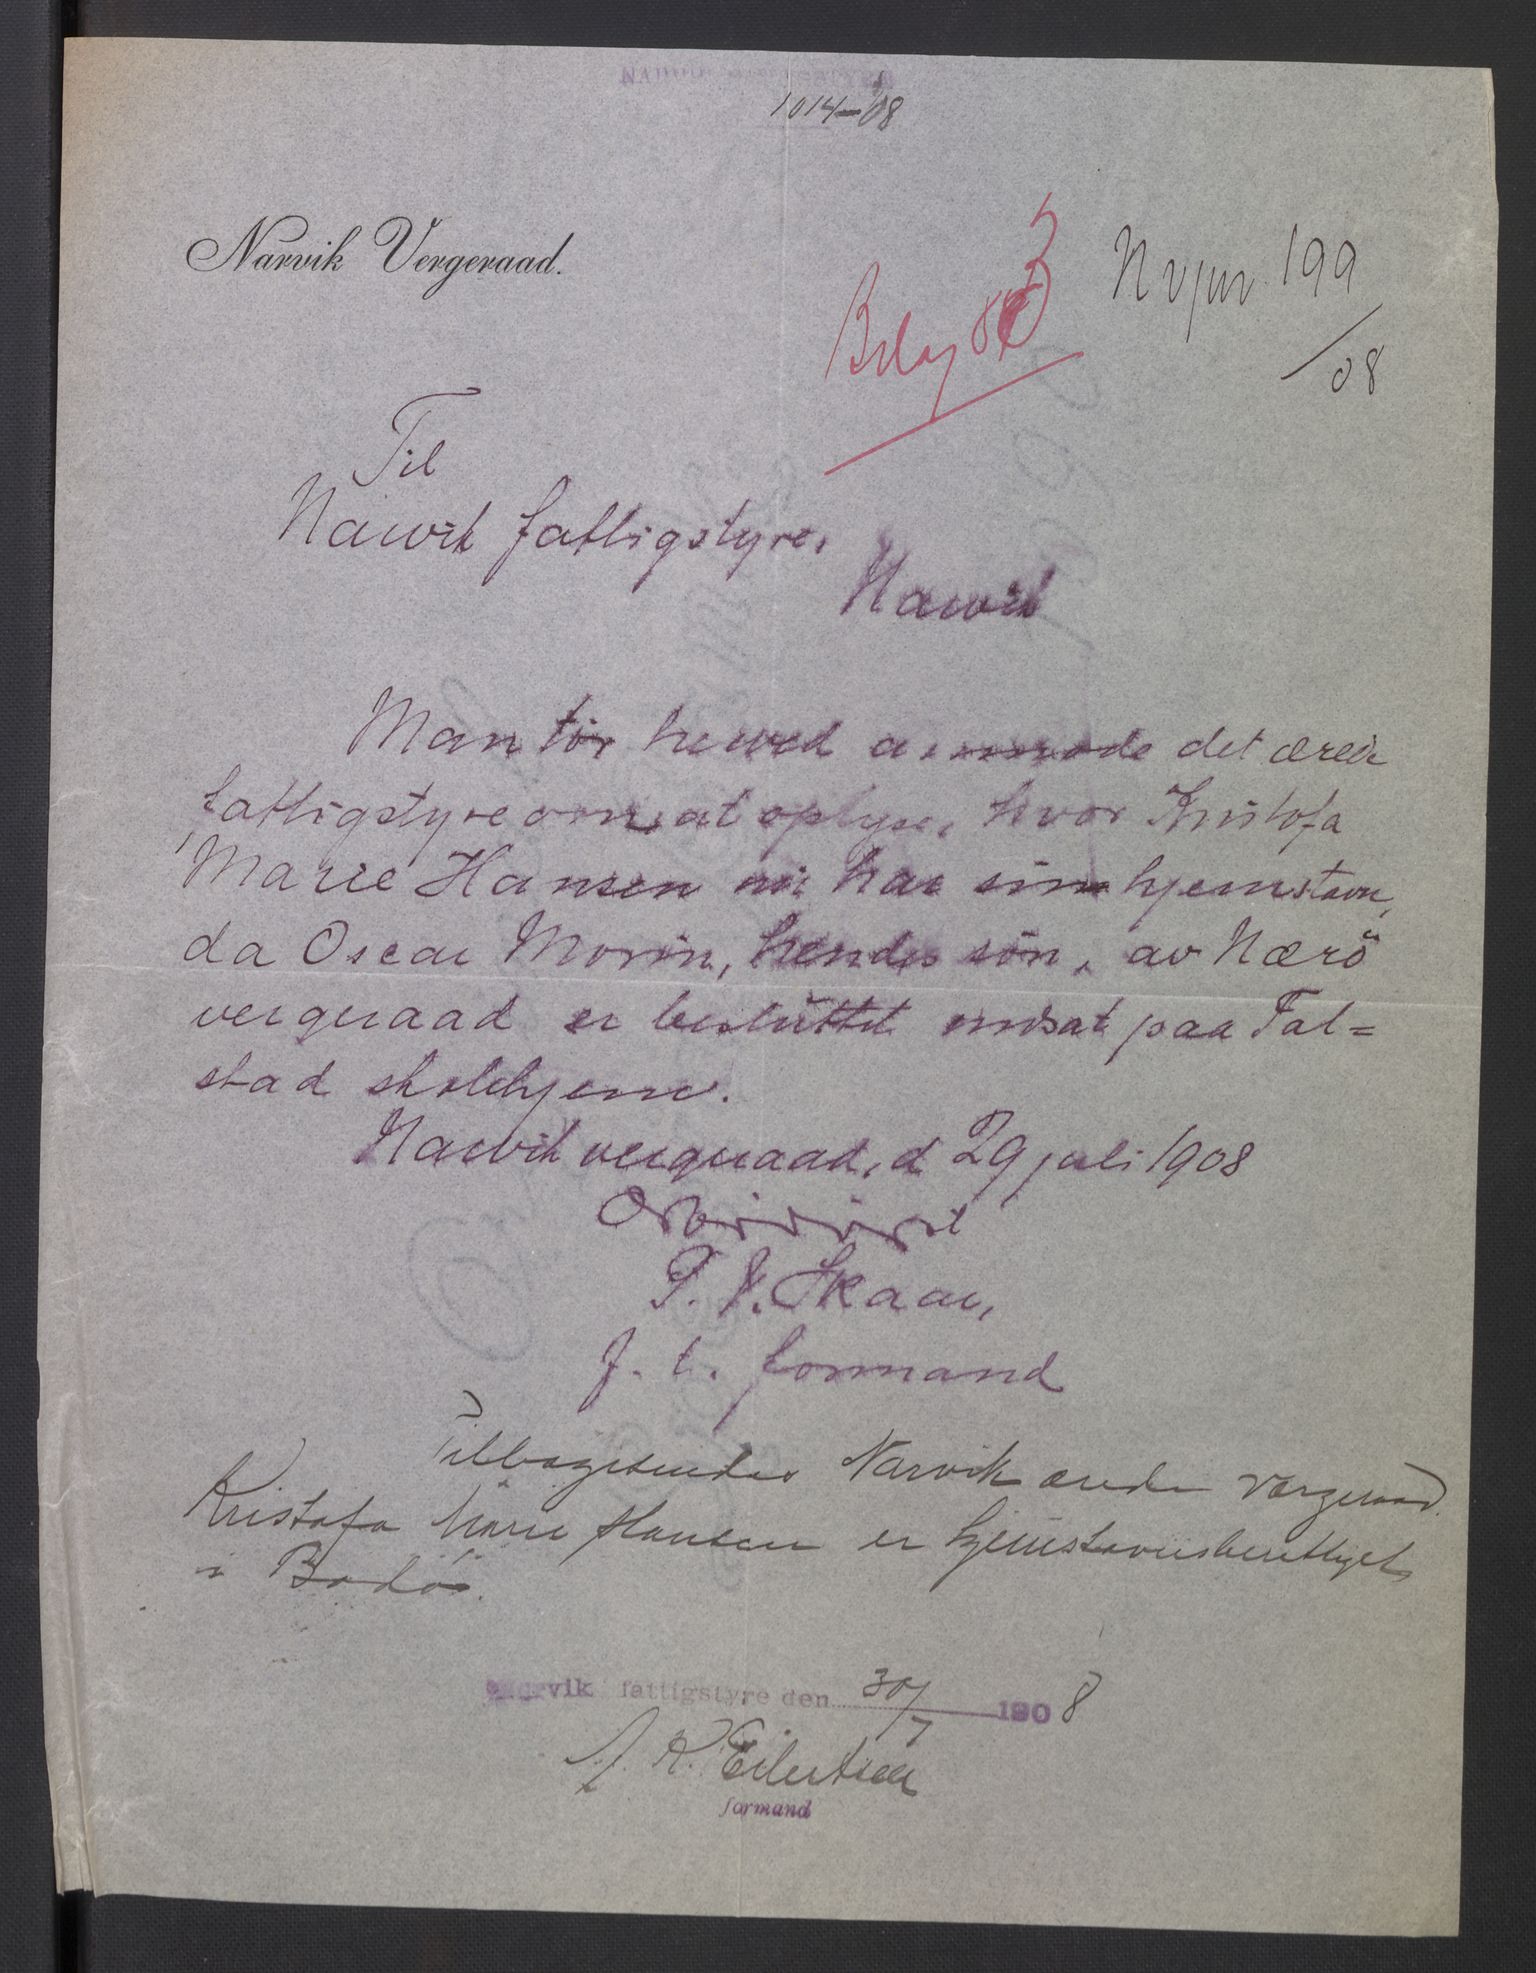 1014-08
Narvik Vergeraad.
Bilag
N v jnr 199
/08
Til
Narvik fattigstyre,
Narvik
Man tør herved anmode det ærede
fattigstyre om at oplyse, hvor Kristofa
Marie Hansen nu har sin hjemstavn,
da Oscar Morin, hendes søn, av Nærö
vergeraad er besluttet indsat paa Fal=
stad skolehjem.
Narvik vergeraad, d 29 juli 1908
Ærbødigst
P. V. Skaar,
f. t. formand
Tilbagesendes Narvik ærede vergeraad.
Kristofa Marie Hansen er hjemstavnsberettiget
i Bodö.
Narvik fattigstyre den 30/7 1908
A. K. Eilertsen
formand